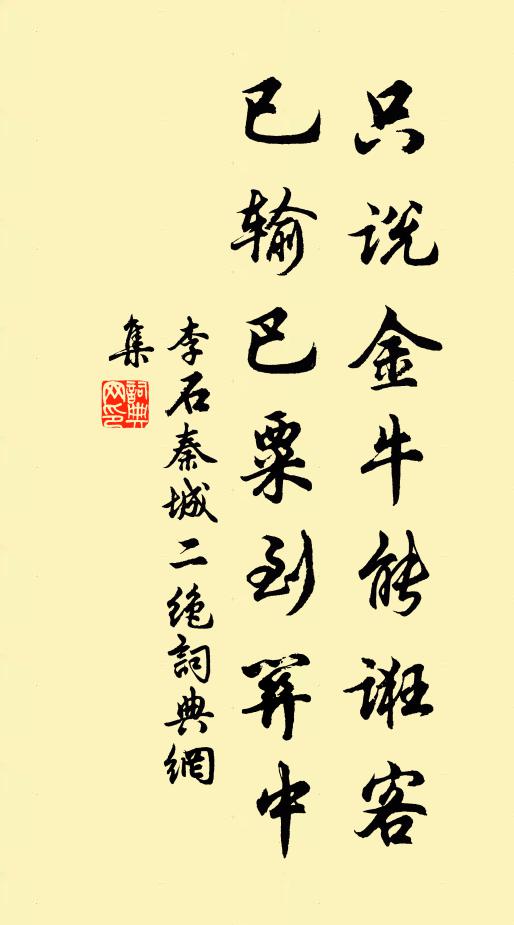 只说金牛能诳客
已输巴粟到关中
李石秦城二绝詞典網
集
詞典
网印